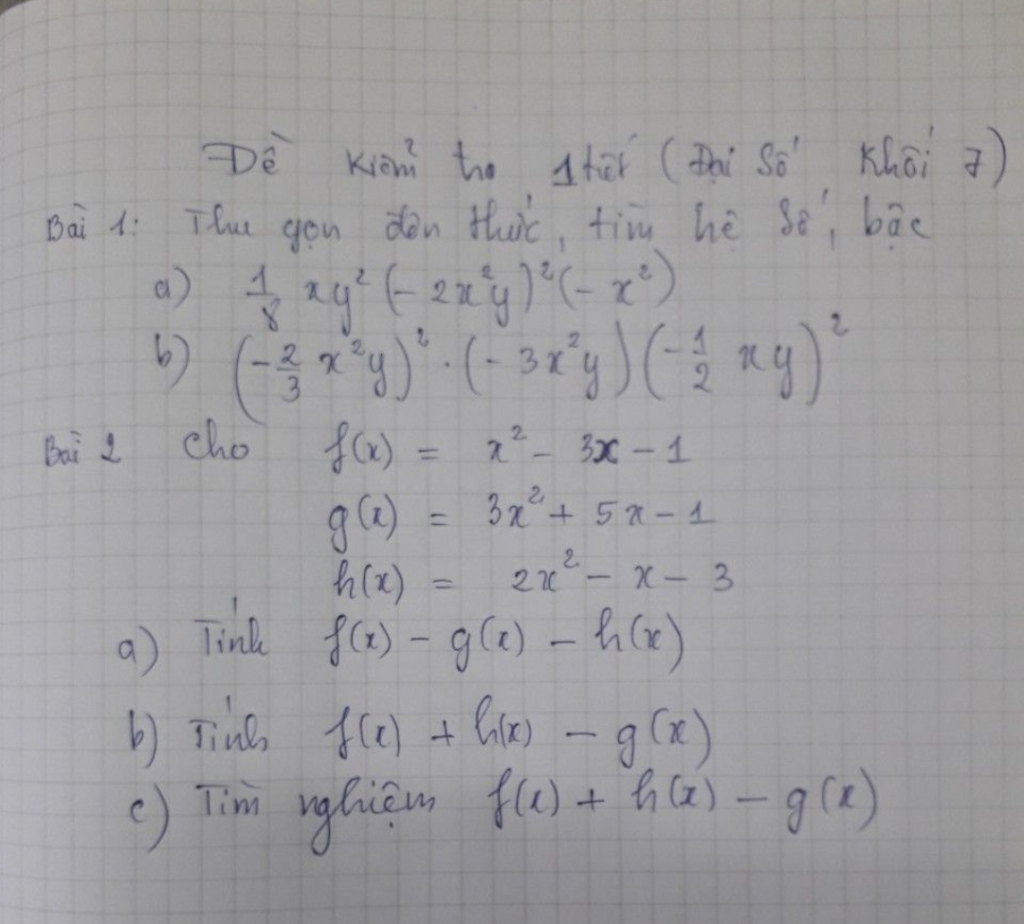 Đề kiểm tra 1 tiết (Đại Số Khối 7)
Bài 1: Thu gọn đơn thức, tìm hệ số, bậc
a) 1/8 xy² (- 2x²y)² (- x²)
b) (- 2/3 x²y)² . (- 3x²y) (- 1/2 xy)²
Bài 2 Cho f(x) = x² - 3x - 1
g(x) = 3x² + 5x - 1
h(x) = 2x² - x - 3
a) Tính f(x) - g(x) - h(x)
b) Tính f(x) + h(x) - g(x)
c) Tìm nghiệm f(x) + h(x) - g(x)